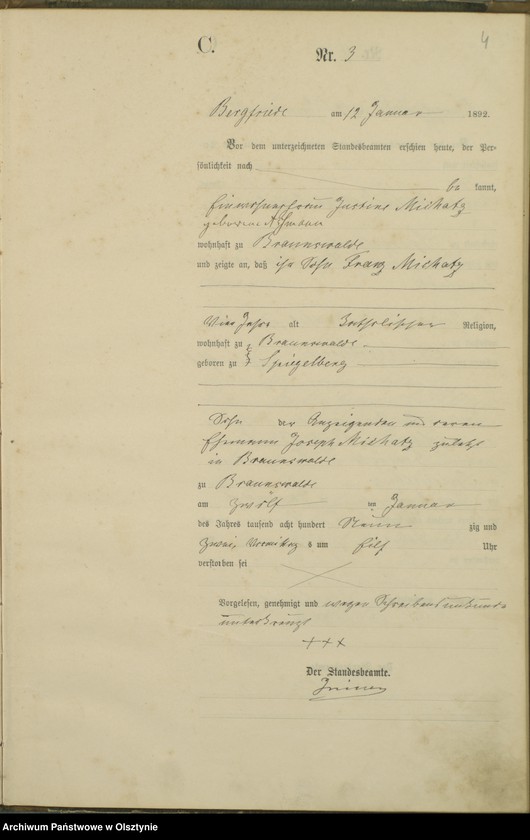 4
C.
Nr. 3
Bergfriede am 12 Januar 1892.
Vor dem unterzeichneten Standesbeamten erschien heute, der Per-
sönlichkeit nach
be kannt,
Justine Michatz
geborene
wohnhaft zu Braunswalde
und zeigte an, daß ihr Sohn Franz Michatz
vier Jahre alt katholischer Religion,
wohnhaft zu Braunswalde
geboren zu Spiegelberg
Sohn der Anzeigenden und deren
Ehemann Joseph Michatz zuletzt
in Braunswalde
zu Braunswalde
am zwölf ten Januar
des Jahres tausend acht hundert Neun zig und
zwei, Vormittag s um Eilf Uhr
verstorben sei
Vorgelesen, genehmigt und wegen Schreibensunkunde
unterkreuzt
+++
Der Standesbeamte.
Archiwum Państwowe w Olsztynie